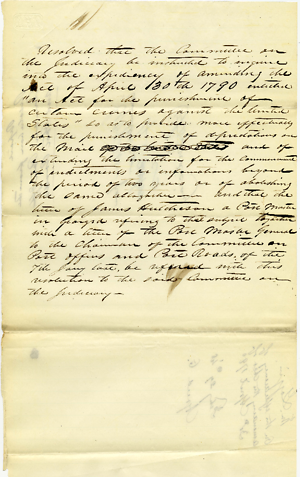 Resolved that the Committee on
the Judiciary be instructed to enquire
into the expediency of amending the
Act of April 30th 1790 entitled
"an Act for the punishment of
certain crimes against the United
States" so as to provide more effectually
for the punishment of depredations on
the Mail and of
extending the limitation for the commencement
of indictments or informations beyond
the period of two years or of abolishing
the same altogether and that the
letter of James a Post Master
in referring to this subject together
with a letter of the Post Master General
to the Chairman of the Committee on
Post offices and Post Roads, of the
7th Jany last, be referred with this
resolution to the said Committee on
the Judiciary—